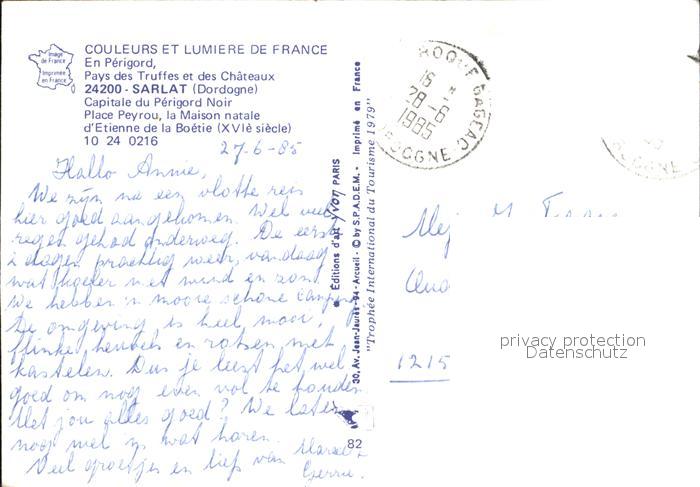 Image
de France
Imprimée
en France
COULEURS ET LUMIERE DE FRANCE
En Périgord,
Pays des Truffes et des Châteaux
24200 - SARLAT (Dordogne)
Capitale du Périgord Noir
Place Peyrou, la Maison natale
d'Etienne de la Boétie (XVIè siècle)
10 24 0216
27-6-85
Hallo Annie,
We zijn na een vlotte reis
hier goed aangekomen. Wel veel
regen gehad onderweg. De eerste
2 dagen prachtig weer, vandaag
wat koeler met wind en zon.
We hebben 'n mooie schone camping
De omgeving is heel mooi,
flinke heuvels en rotsen, met
kastelen. Dus je leest het wel
goed om nog even vol te houden.
Met jou alles goed? We laten
nog wel 's wat horen.
Veel groetjes en liefs van Marcel +
Gerrie.
Editions d'art yvon PARIS
30, Av. Jean-Jaurès-94-Arcueil - © by S.P.A.D.E.M. - Imprimé en France
"Trophée International du Tourisme 1979"
82
ROQUE GAGEAC
16 H
28-6
1985
DOGNE
DOGNE
Mej M
1215
privacy protection
Datenschutz